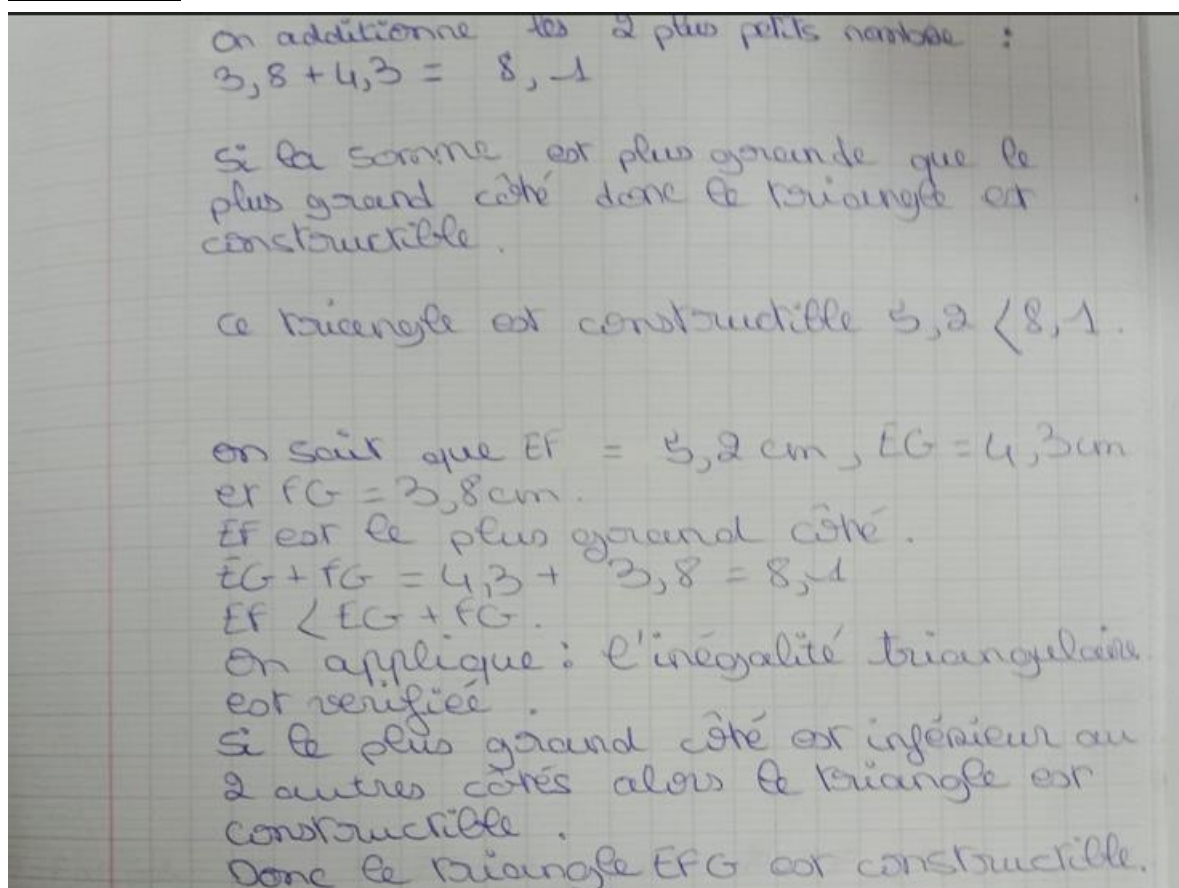 on additionne les 2 plus petits nombre :
3,8 + 4,3 = 8,1
Si la somme est plus grande que le
plus grand côté donc le triangle est
constructible.
Ce triangle est constructible 5,2 < 8,1.
on sait que EF = 5,2 cm, EG = 4,3 cm
et FG = 3,8 cm.
EF est le plus grand côté.
EG + FG = 4,3 + 3,8 = 8,1
EF < EG + FG.
On applique : l'inégalité triangulaire
est verifieé.
Si le plus grand côté est inférieur au
2 autres côtés alors le triangle est
constructible.
Donc le triangle EFG est constructible.